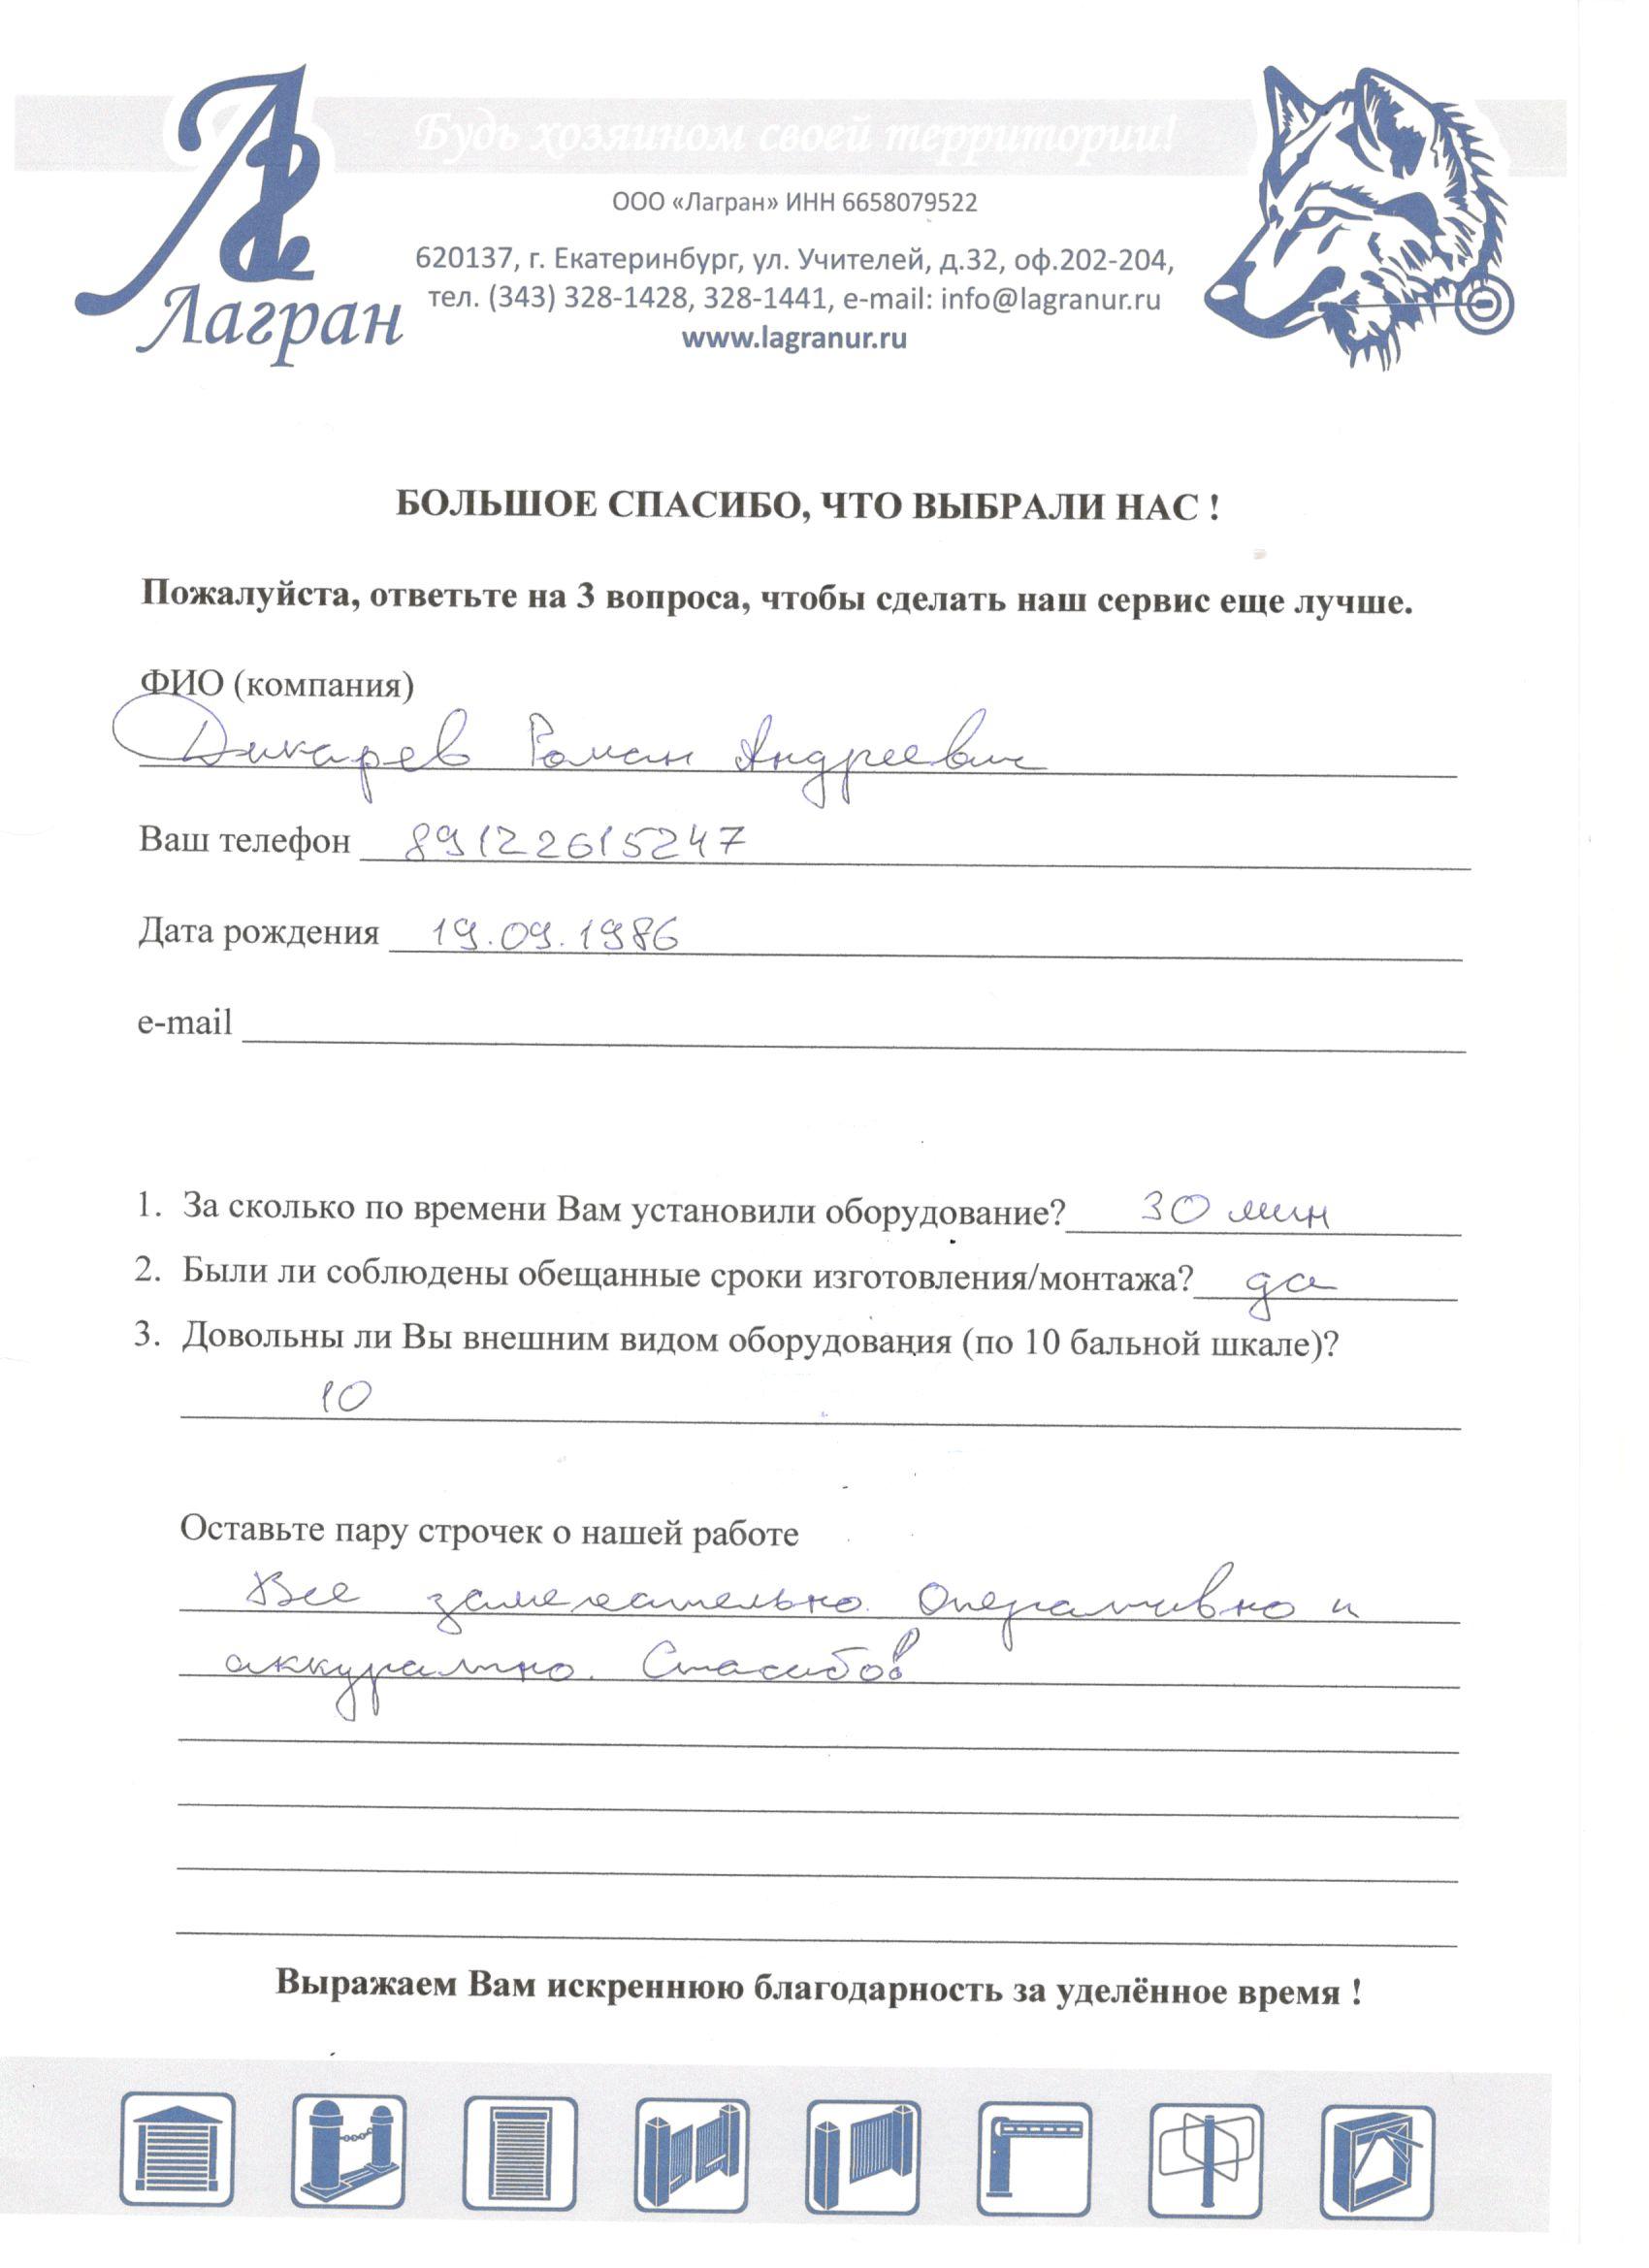 Будь хозяином своей территории!
Лагран
ООО «Лагран» ИНН 6658079522
620137, г. Екатеринбург, ул. Учителей, д.32, оф.202-204,
тел. (343) 328-1428, 328-1441, e-mail: info@lagranur.ru
www.lagranur.ru
БОЛЬШОЕ СПАСИБО, ЧТО ВЫБРАЛИ НАС !
Пожалуйста, ответьте на 3 вопроса, чтобы сделать наш сервис еще лучше.
ФИО (компания)
Дикарев Роман Андреевич
Ваш телефон 89122615247
Дата рождения 19.09.1986
e-mail
1. За сколько по времени Вам установили оборудование? 30 мин
2. Были ли соблюдены обещанные сроки изготовления/монтажа? да
3. Довольны ли Вы внешним видом оборудования (по 10 бальной шкале)?
10
Оставьте пару строчек о нашей работе
Все замечательно. Оперативно и
аккуратно. Спасибо!
Выражаем Вам искреннюю благодарность за уделённое время !